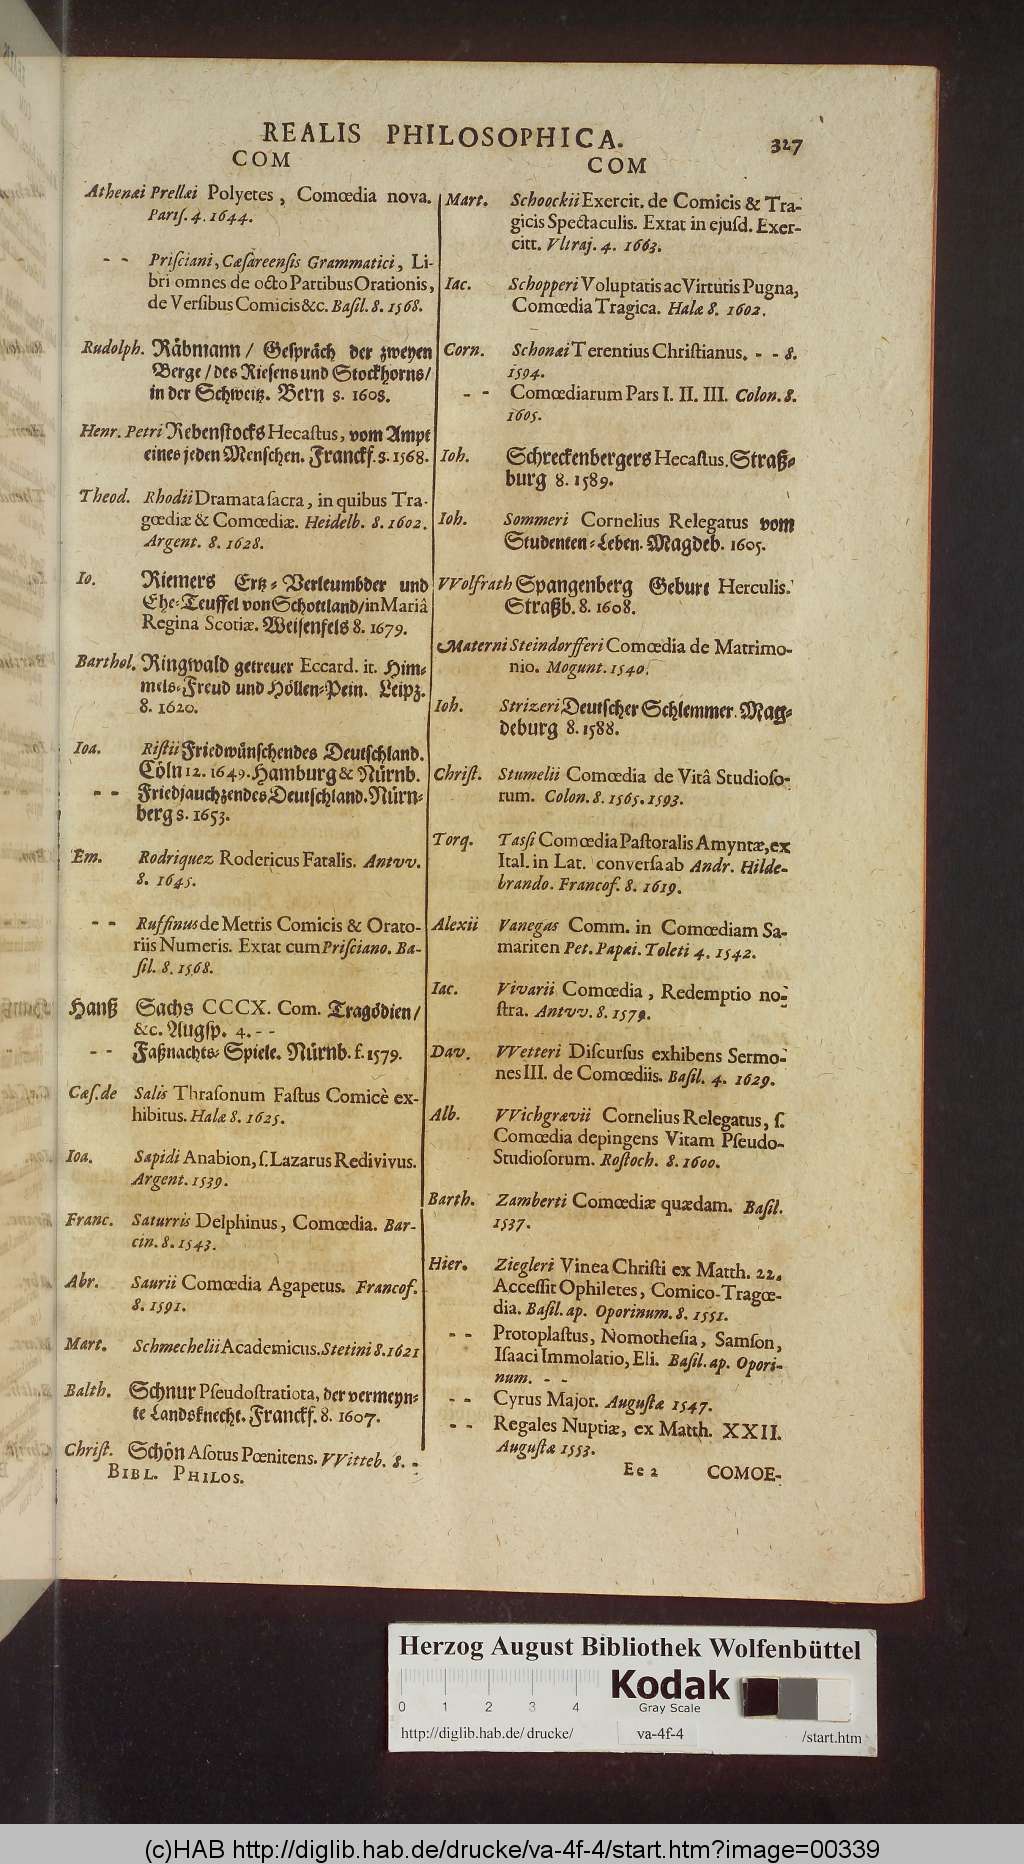 REALIS PHILOSOPHICA. 327
COM COM
Athenæi Prellæi Polyetes, Comœdia nova.
Pariſ. 4. 1644.
- - Priſciani, Cæſareenſis Grammatici, Li-
bri omnes de octo Partibus Orationis,
de Verſibus Comicis &c. Baſil. 8. 1568.
Rudolph. Räbmann / Geſpräch der zweyen
Berge / des Rieſens und Stockhorns /
in der Schweitz. Bern 8. 1608.
Henr. Petri Rebenſtocks Hecaſtus, vom Ampt
eines jeden Menſchen. Franckf. 8. 1568.
Theod. Rhodii Dramata ſacra, in quibus Tra-
gœdiæ & Comœdiæ. Heidelb. 8. 1602.
Argent. 8. 1628.
Io. Riemers Ertz-Verleumbder und
Ehe-Teuffel von Schottland / in Mariâ
Regina Scotiæ. Weiſenfels 8. 1679.
Barthol. Ringwald getreuer Eccard. it. Him-
mels-Freud und Höllen-Pein. Leipz.
8. 1620.
Ioa. Riſtii Friedwünſchendes Deutſchland.
Cöln 12. 1649. Hamburg & Nürnb.
- - Friedjauchzendes Deutſchland. Nürn-
berg 8. 1653.
Em. Rodriquez Rodericus Fatalis. Antvv.
8. 1645.
- - Ruffinus de Metris Comicis & Orato-
riis Numeris. Extat cum Priſciano. Ba-
ſil. 8. 1568.
Hanß Sachs CCCX. Com. Tragödien /
&c. Augſp. 4. - -
- - Faßnachts-Spiele. Nürnb. f. 1579.
Cæſ. de Salis Thraſonum Faſtus Comicè ex-
hibitus. Halæ 8. 1625.
Ioa. Sapidi Anabion, ſ. Lazarus Redivivus.
Argent. 1539.
Franc. Saturris Delphinus, Comœdia. Bar-
cin. 8. 1543.
Abr. Saurii Comœdia Agapetus. Francof.
8. 1591.
Mart. Schmechelii Academicus. Stetini 8. 1621
Balth. Schnur Pſeudoſtratiota, der vermeyn-
te Landsknecht. Franckf. 8. 1607.
Chriſt. Schön Aſotus Pœnitens. VVitteb. 8. -
BIBL. PHILOS.
Mart. Schoockii Exercit. de Comicis & Tra-
gicis Spectaculis. Extat in ejuſd. Exer-
citt. Vltraj. 4. 1663.
Iac. Schopperi Voluptatis ac Virtutis Pugna,
Comœdia Tragica. Halæ 8. 1602.
Corn. Schonæi Terentius Chriſtianus. - - 8.
1594.
- - Comœdiarum Pars I. II. III. Colon. 8.
1605.
Ioh. Schreckenbergers Hecaſtus. Straß-
burg 8. 1589.
Ioh. Sommeri Cornelius Relegatus vom
Studenten-Leben. Magdeb. 1605.
VVolfrath Spangenberg Geburt Herculis.
Straßb. 8. 1608.
Materni Steindorfferi Comœdia de Matrimo-
nio. Mogunt. 1540.
Ioh. Strizeri Deutſcher Schlemmer. Mag-
deburg 8. 1588.
Chriſt. Stumelii Comœdia de Vitâ Studioſo-
rum. Colon. 8. 1565. 1593.
Torq. Taſſi Comœdia Paſtoralis Amyntæ, ex
Ital. in Lat. converſa ab Andr. Hilde-
brando. Francof. 8. 1619.
Alexii Vanegas Comm. in Comœdiam Sa-
mariten Pet. Papæi. Toleti 4. 1542.
Iac. Vivarii Comœdia, Redemptio no-
ſtra. Antvv. 8. 1579.
Dav. VVetteri Diſcurſus exhibens Sermo-
nes III. de Comœdiis. Baſil. 4. 1629.
Alb. VVichgrævii Cornelius Relegatus, ſ.
Comœdia depingens Vitam Pſeudo-
Studioſorum. Roſtoch. 8. 1600.
Barth. Zamberti Comœdiæ quædam. Baſil.
1537.
Hier. Ziegleri Vinea Chriſti ex Matth. 22.
Acceſſit Ophiletes, Comico-Tragœ-
dia. Baſil. ap. Oporinum. 8. 1551.
- - Protoplaſtus, Nomotheſia, Samſon,
Iſaaci Immolatio, Eli. Baſil. ap. Opori-
num. - -
- - Cyrus Major. Auguſtæ 1547.
- - Regales Nuptiæ, ex Matth. XXII.
Auguſtæ 1553.
Ee 2 COMOE-
Herzog August Bibliothek Wolfenbüttel
0 1 2 3 4
Kodak
Gray Scale
http://diglib.hab.de/drucke/ va-4f-4 /start.htm
(c)HAB http://diglib.hab.de/drucke/va-4f-4/start.htm?image=00339